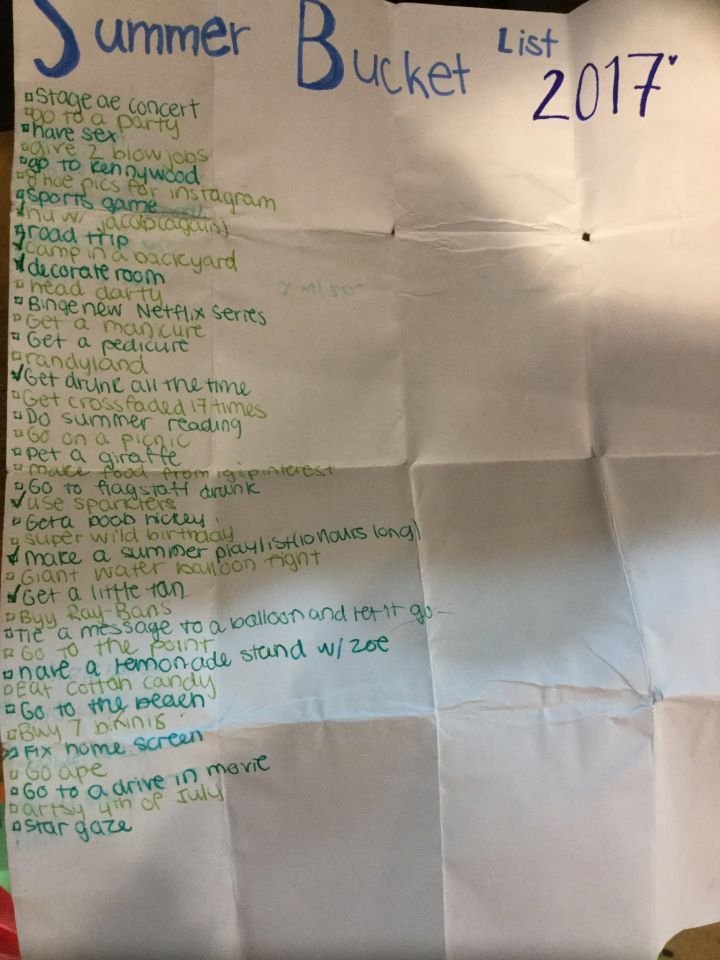 Summer Bucket List
2017
Stage ae concert
go to a party
have sex
give 2 blowjobs
go to kennywood
pics for instagram
sports game
w/ jacob (again)
road trip
camp in a backyard
decorate room
head darty
Binge new Netflix series
Get a manicure
Get a pedicure
randyland
Get drunk all the time
Get crossfaded 17 times
Do summer reading
Go on a picnic
Pet a giraffe
make food from ig+pinterest
Go to flagstaff drunk
use sparklers
Get a boob hickey
super wild birthday
make a summer playlist (10 hours long)
Giant water balloon fight
Get a little tan
Buy Ray-Bans
Tie a message to a balloon and let it go
Go to the point
have a lemonade stand w/ zoe
Eat cotton candy
Go to the beach
Buy 7 bikinis
Fix home screen
Go ape
Go to a drive in movie
artsy 4th of July
Star gaze